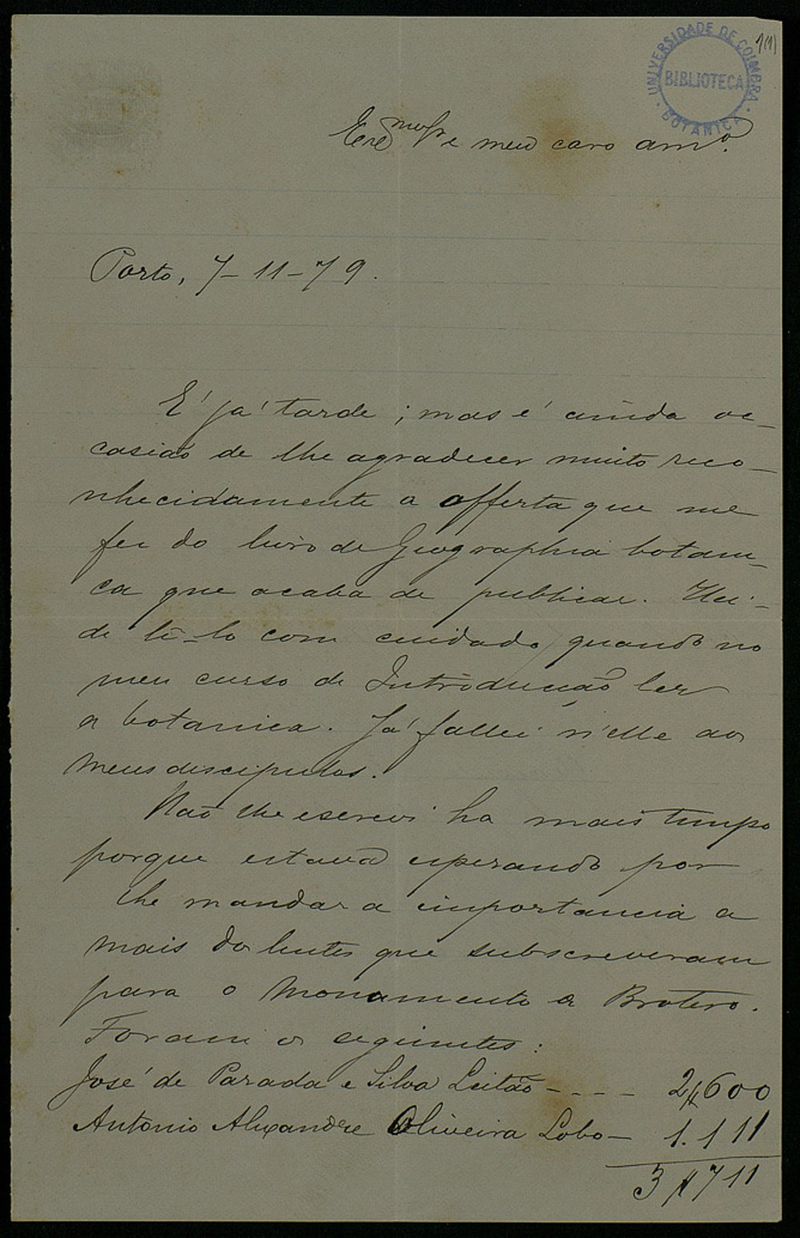 UNIVERSIDADE DE COIMBRA
BIBLIOTECA
BOTANICA
Exmo Sr e meu caro amo.
Porto, 7-11-79.
E' já tarde; mas é ainda oc-
casião de lhe agradecer muito reco-
nhecidamente a offerta que me
fez do livro de Geographia botani-
ca que acaba de publicar. Hei-
de lê-lo com cuidado, quando no
meu curso de Introducção ler
a botanica. Já fallei n'elle aos
meus discipulos.
Não lhe escrevi ha mais tempo
porque estava esperando por
lhe mandar a importancia a
mais dos lentes que subscreveram
para o Monumento a Brotero.
Foram os seguintes:
José de Parada e Silva Leitão - - - - 2$600
Antonio Alexandre Oliveira Lobo - 1.111
3$711